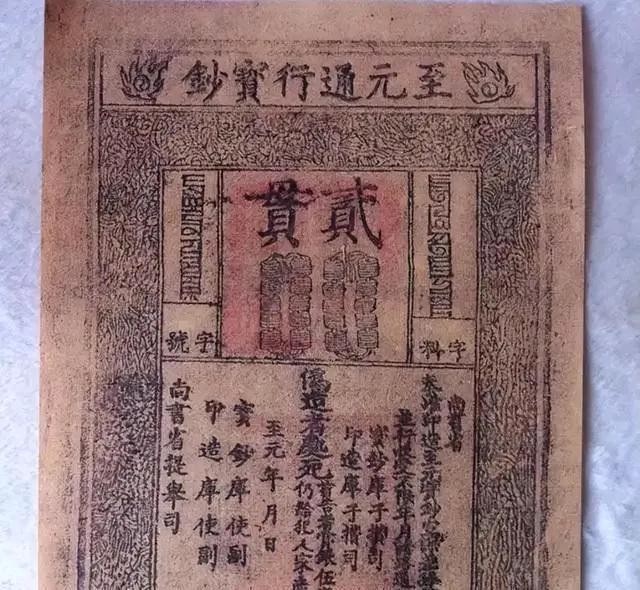 至元通行寶鈔
貳貫
字料
字號
尚書省
奏准印造至元寶鈔
並行收受不限年月諸路通
寶鈔庫子攢司
印造庫子攢司
偽造者處死
首告者賞銀伍
仍給犯人家產
至元年月日
寶鈔庫使副
印造庫使副
尚書省提舉司